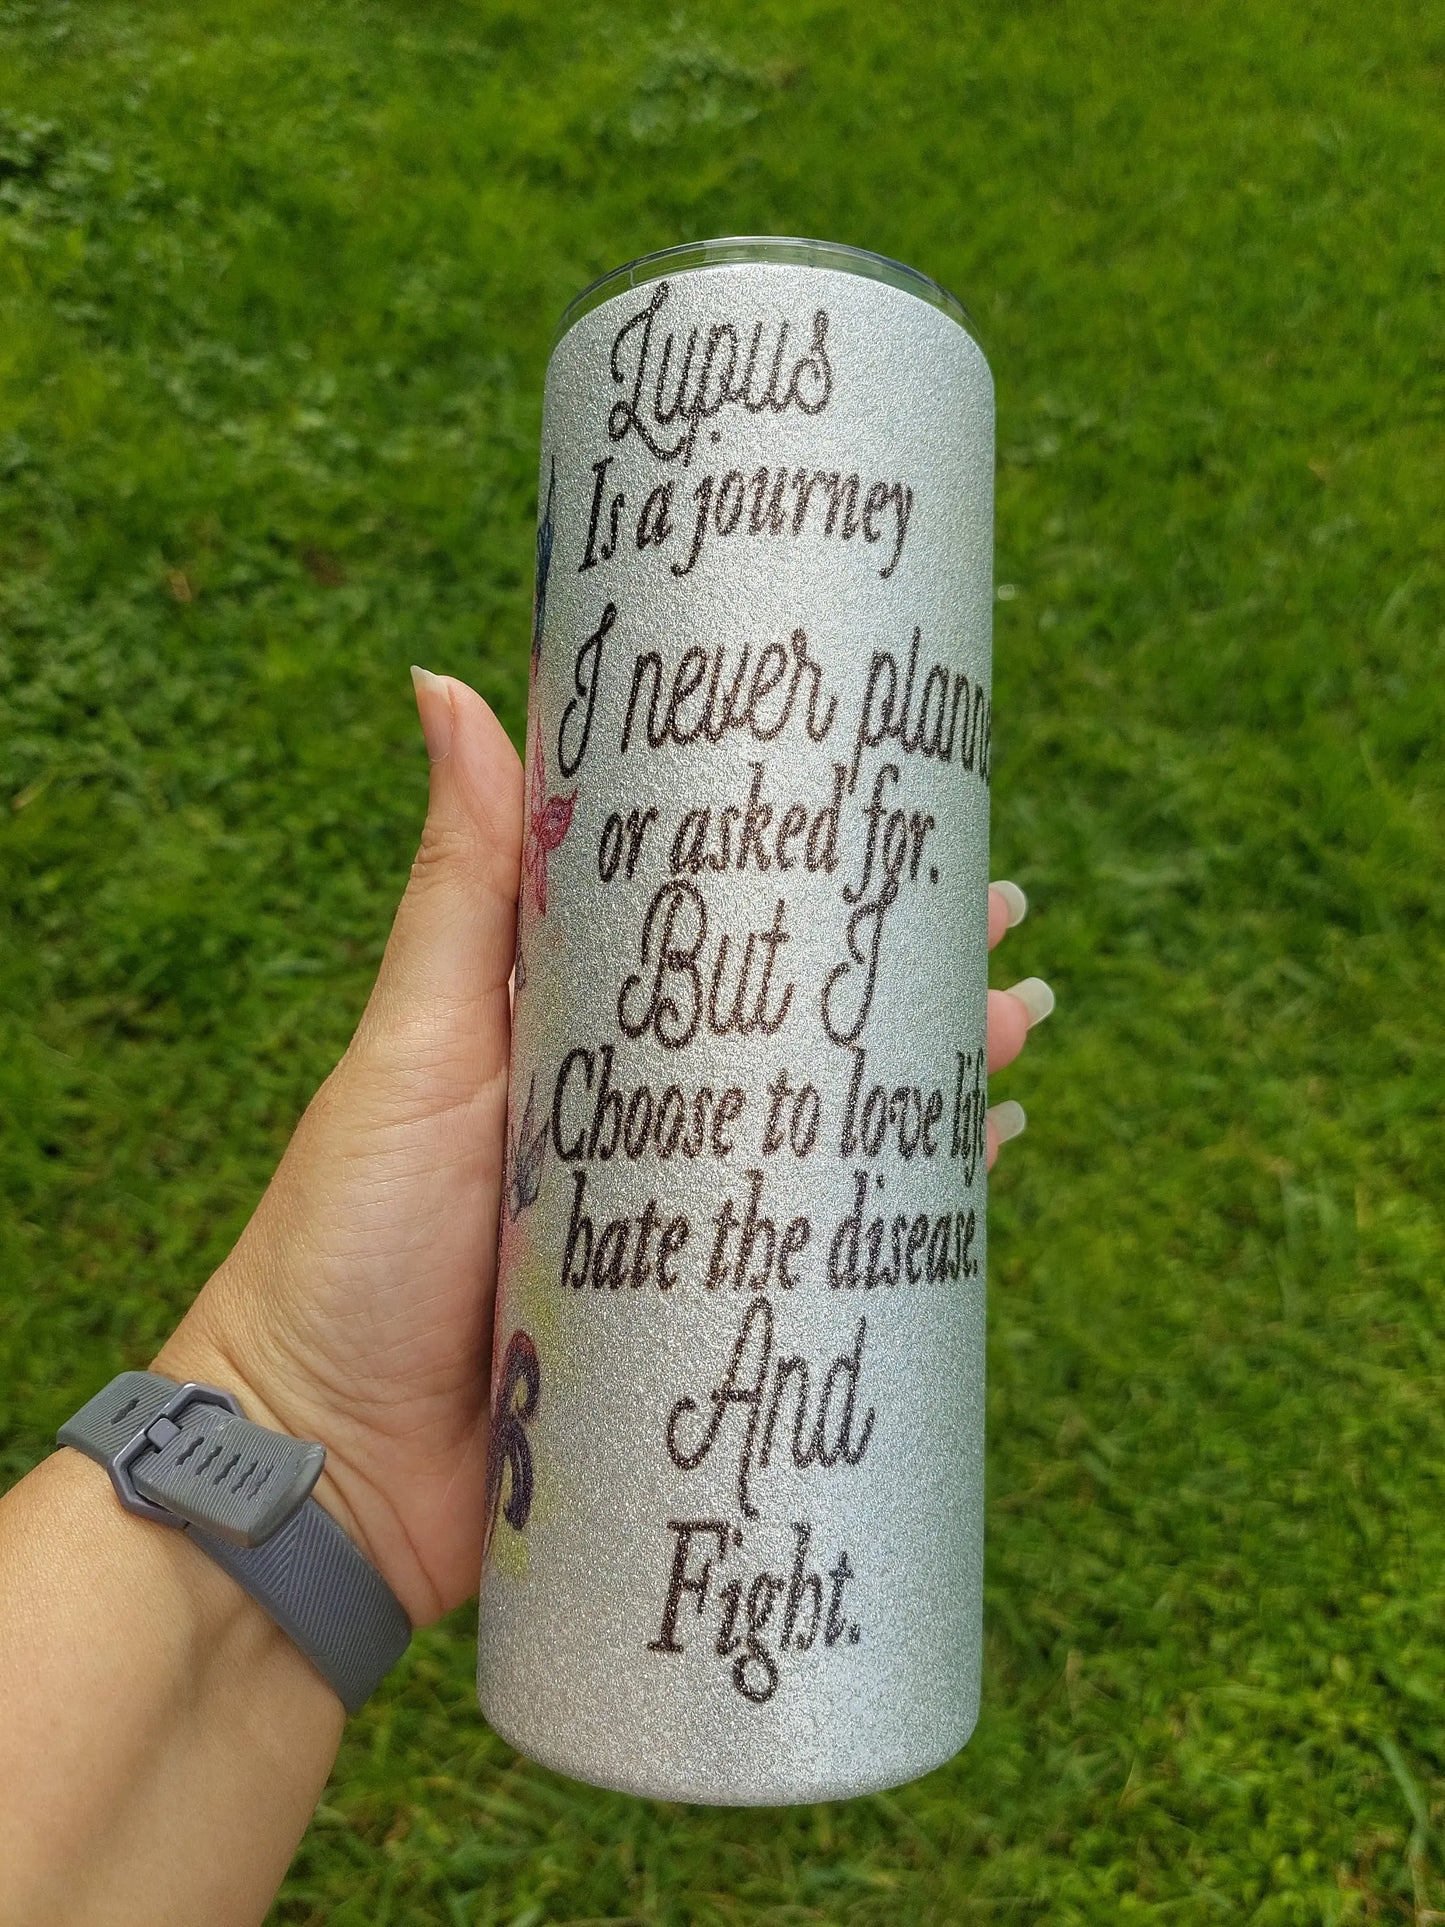 Lupus
Is a journey
I never planne
or asked for.
But I
Choose to love lif
hate the disease.
And
Fight.